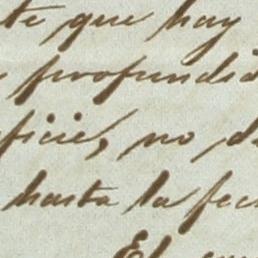 te que hay
profundid
ficie, no d
hasta la fec
El